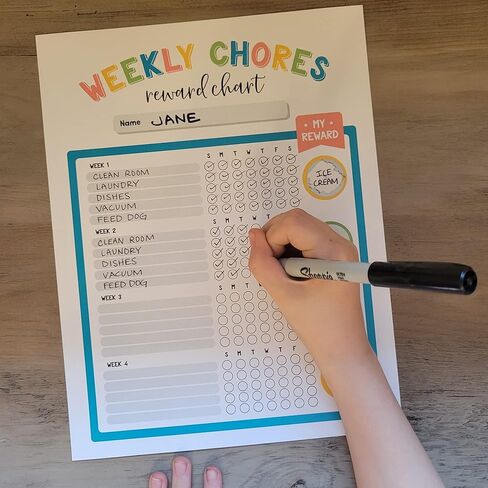 WEEKLY CHORES
reward chart
Name JANE
MY
REWARD
WEEK 1
S M T W T F S
CLEAN ROOM
LAUNDRY
DISHES
VACUUM
FEED DOG
ICE
CREAM
WEEK 2
S M T W
CLEAN ROOM
LAUNDRY
DISHES
VACUUM
FEED DOG
WEEK 3
S M T W
WEEK 4
S M T W T F
Sharpie